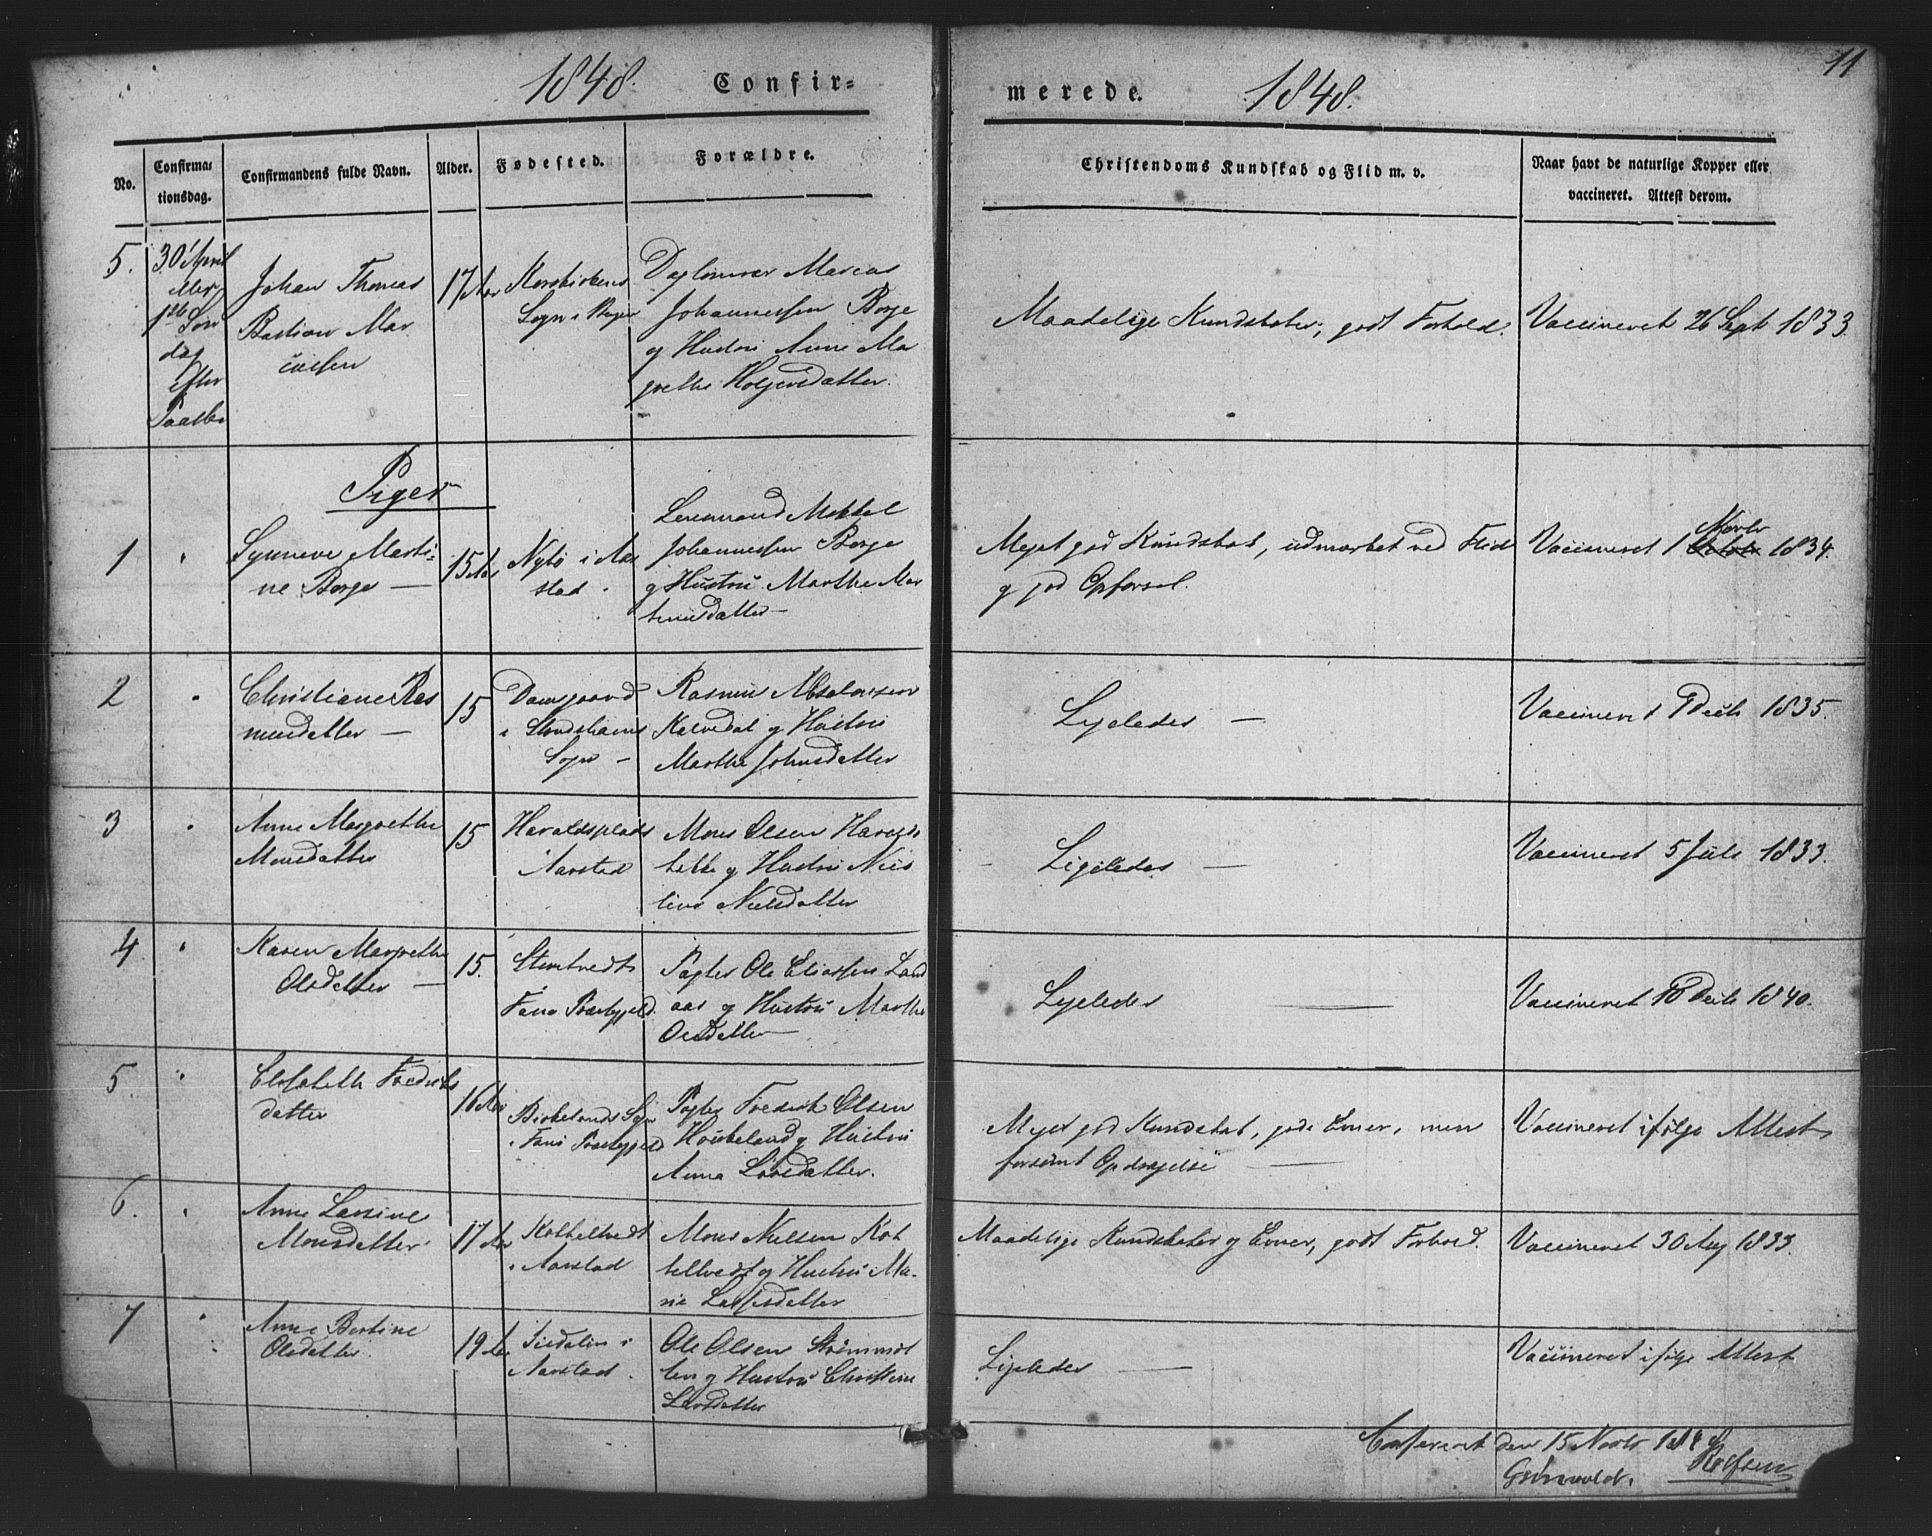 1848. Confir=
merede. 1848.
11
No.
Confirma=
tionsdag.
Confirmandens fulde Navn.
Alder.
Fødested.
Forældre.
Christendoms Kundskab og Flid m. v.
Naar havt de naturlige Kopper eller
vaccineret. Attest derom.
5.
30 April
eller
1ste Søn
dag
efter
Paaske
Johan Thomas
Bastian Mar
cussen
17 Aar
Korskirkens
Sogn i Bergen
Daglønner Marcus
Johannessen Borge
og Hustru Anne Ma
grethe Holgersdatter.
Maadelige Kundskaber, godt Forhold.
Vaccineret 26 Sept 1833.
Piger
1
"
Synneve Marti-
ne Borge —
15 Aar
Nybø i Aar
stad.
Lensmand Mekkel
Johannessen Borge
og Hustru Marthe Mar
tinusdatter —
Meget god Kundskab, udmærket ved Flid
og god Opførsel.
Vaccineret 1 Novbr 1834.
2
"
Christiane Ras
musdatter —
15
Damsgaard
i Sogn —
Rasmus Absalonsen
Kalvedal og Hustru
Marthe Johnsdatter
Ligeledes —
Vaccineret Decbr 1835.
3
"
Anne Margrethe
Monsdatter
15
Haraldsplads
Aarstad
Mons Olsen Haralds
og Hustru Niels
Nielsdatter
Ligeledes —
Vaccineret 5 Juli 1833.
4
"
Karen Margrethe
Olsdatter —
15.
Fana Præstegjeld.
Pagter Ole Eliassen Land
aas og Hustru Marthe
Olsdatter —
Ligeledes —
Vaccineret 10 Decbr 1840.
5
"
Elisabeth Fredriks
datter
16 Aar
Birkelands Sogn
i Fana Præstegjeld
Pagter Fredrik Olsen
Houkeland og Hustru
Anna Larsdatter.
Meget god Kundskab, gode Evner, men
forsømt Opdragelse —
Vaccineret ifølge Attest
6.
"
Anne Larsine
Monsdatter
17 Aar
Kalhelvedt
i Aarstad
Mons Nielsen Kal
helvedt og Hustru Ma-
rie Larsdatter
Maadelige Kundskaber og Evner, godt Forhold.
Vaccineret 30 Aug 1833.
7
"
Anne Bertine
Olsdatter.
19 Aar
i
Aarstad.
Ole Olsen
og Hustru Christine
Larsdatter
Ligeledes —
Vaccineret ifølge Attest
Confereret den 15 Novbr 1848
Grønvold.